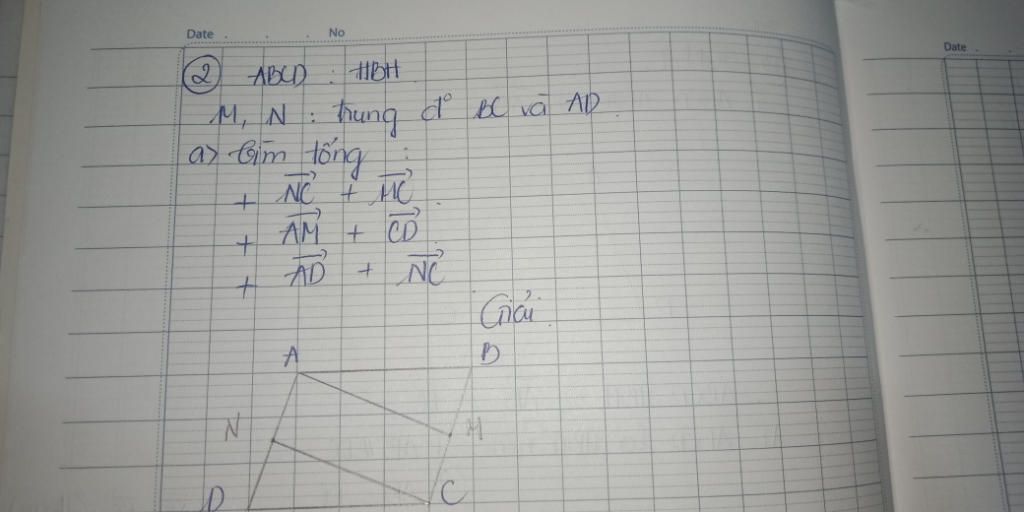 Date . . . No
Date . .
② ABCD : HBH
M, N : trung đ° BC và AD.
a) Tìm tổng :
+ NC + MC.
+ AM + CD.
+ AD + NC
Giải.
A B
N M
D C